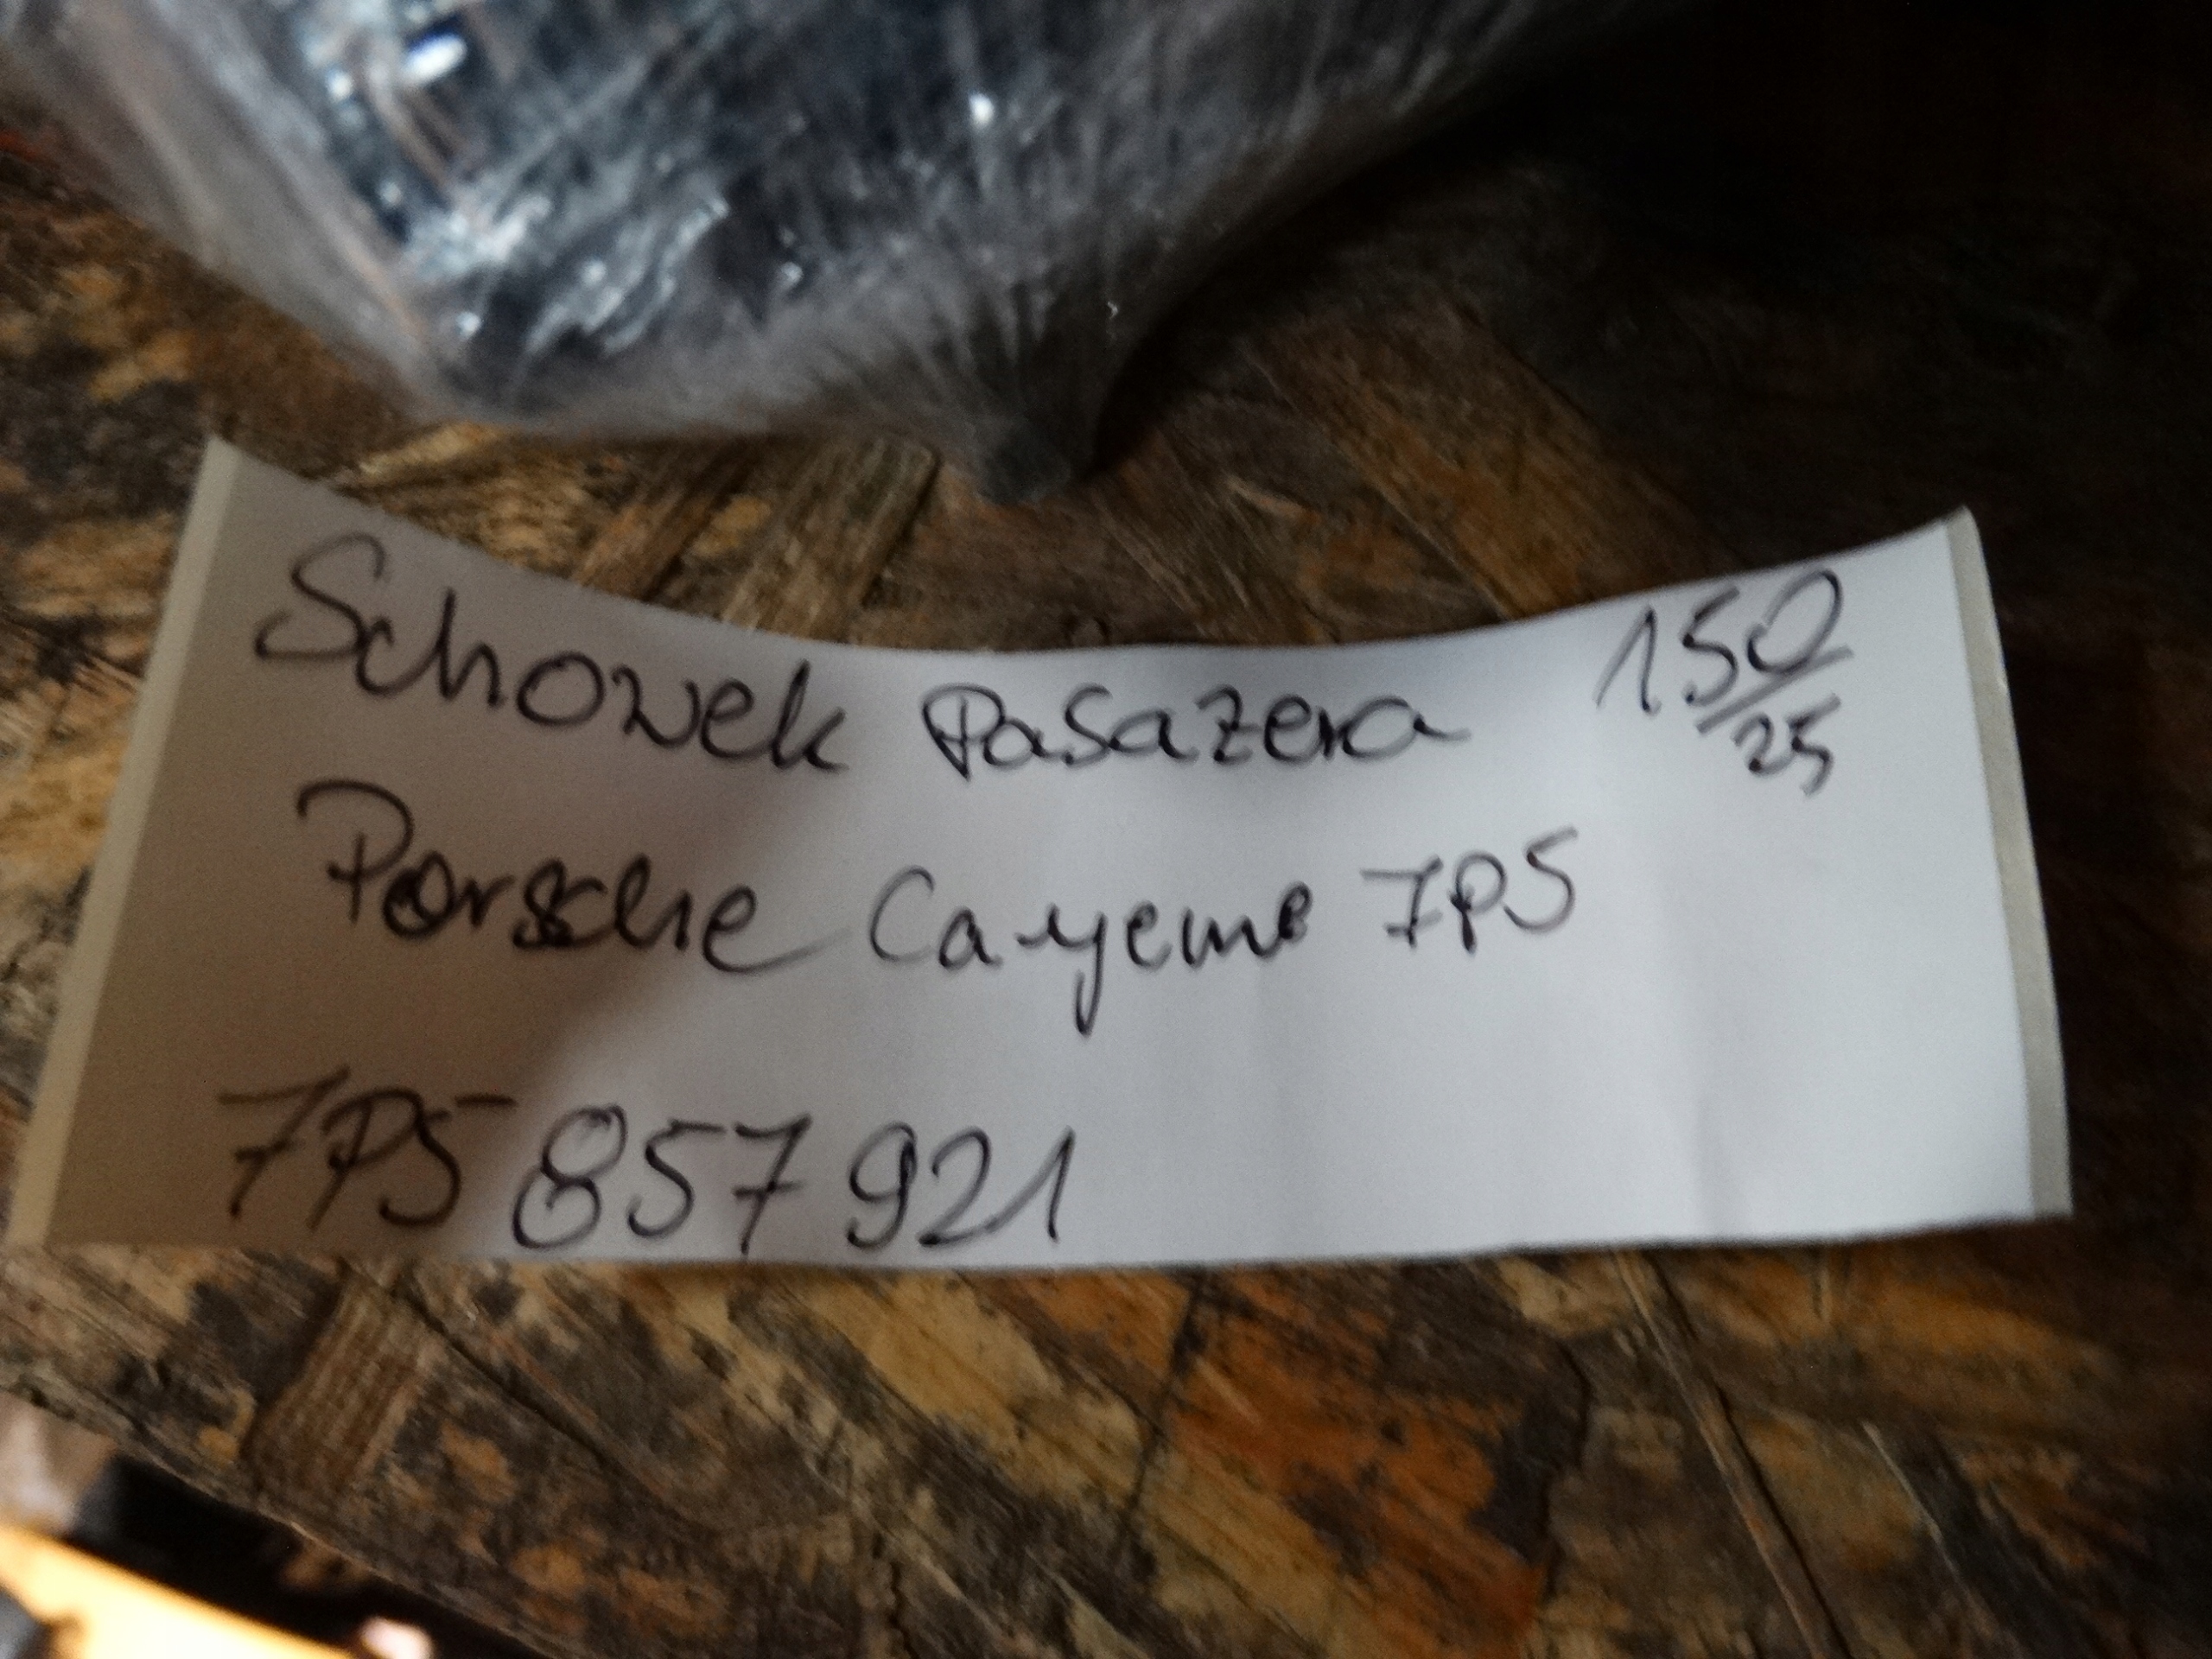 Schowek Pasazera 150/25
Porsche Cayenne 7P5
7P5 857 921